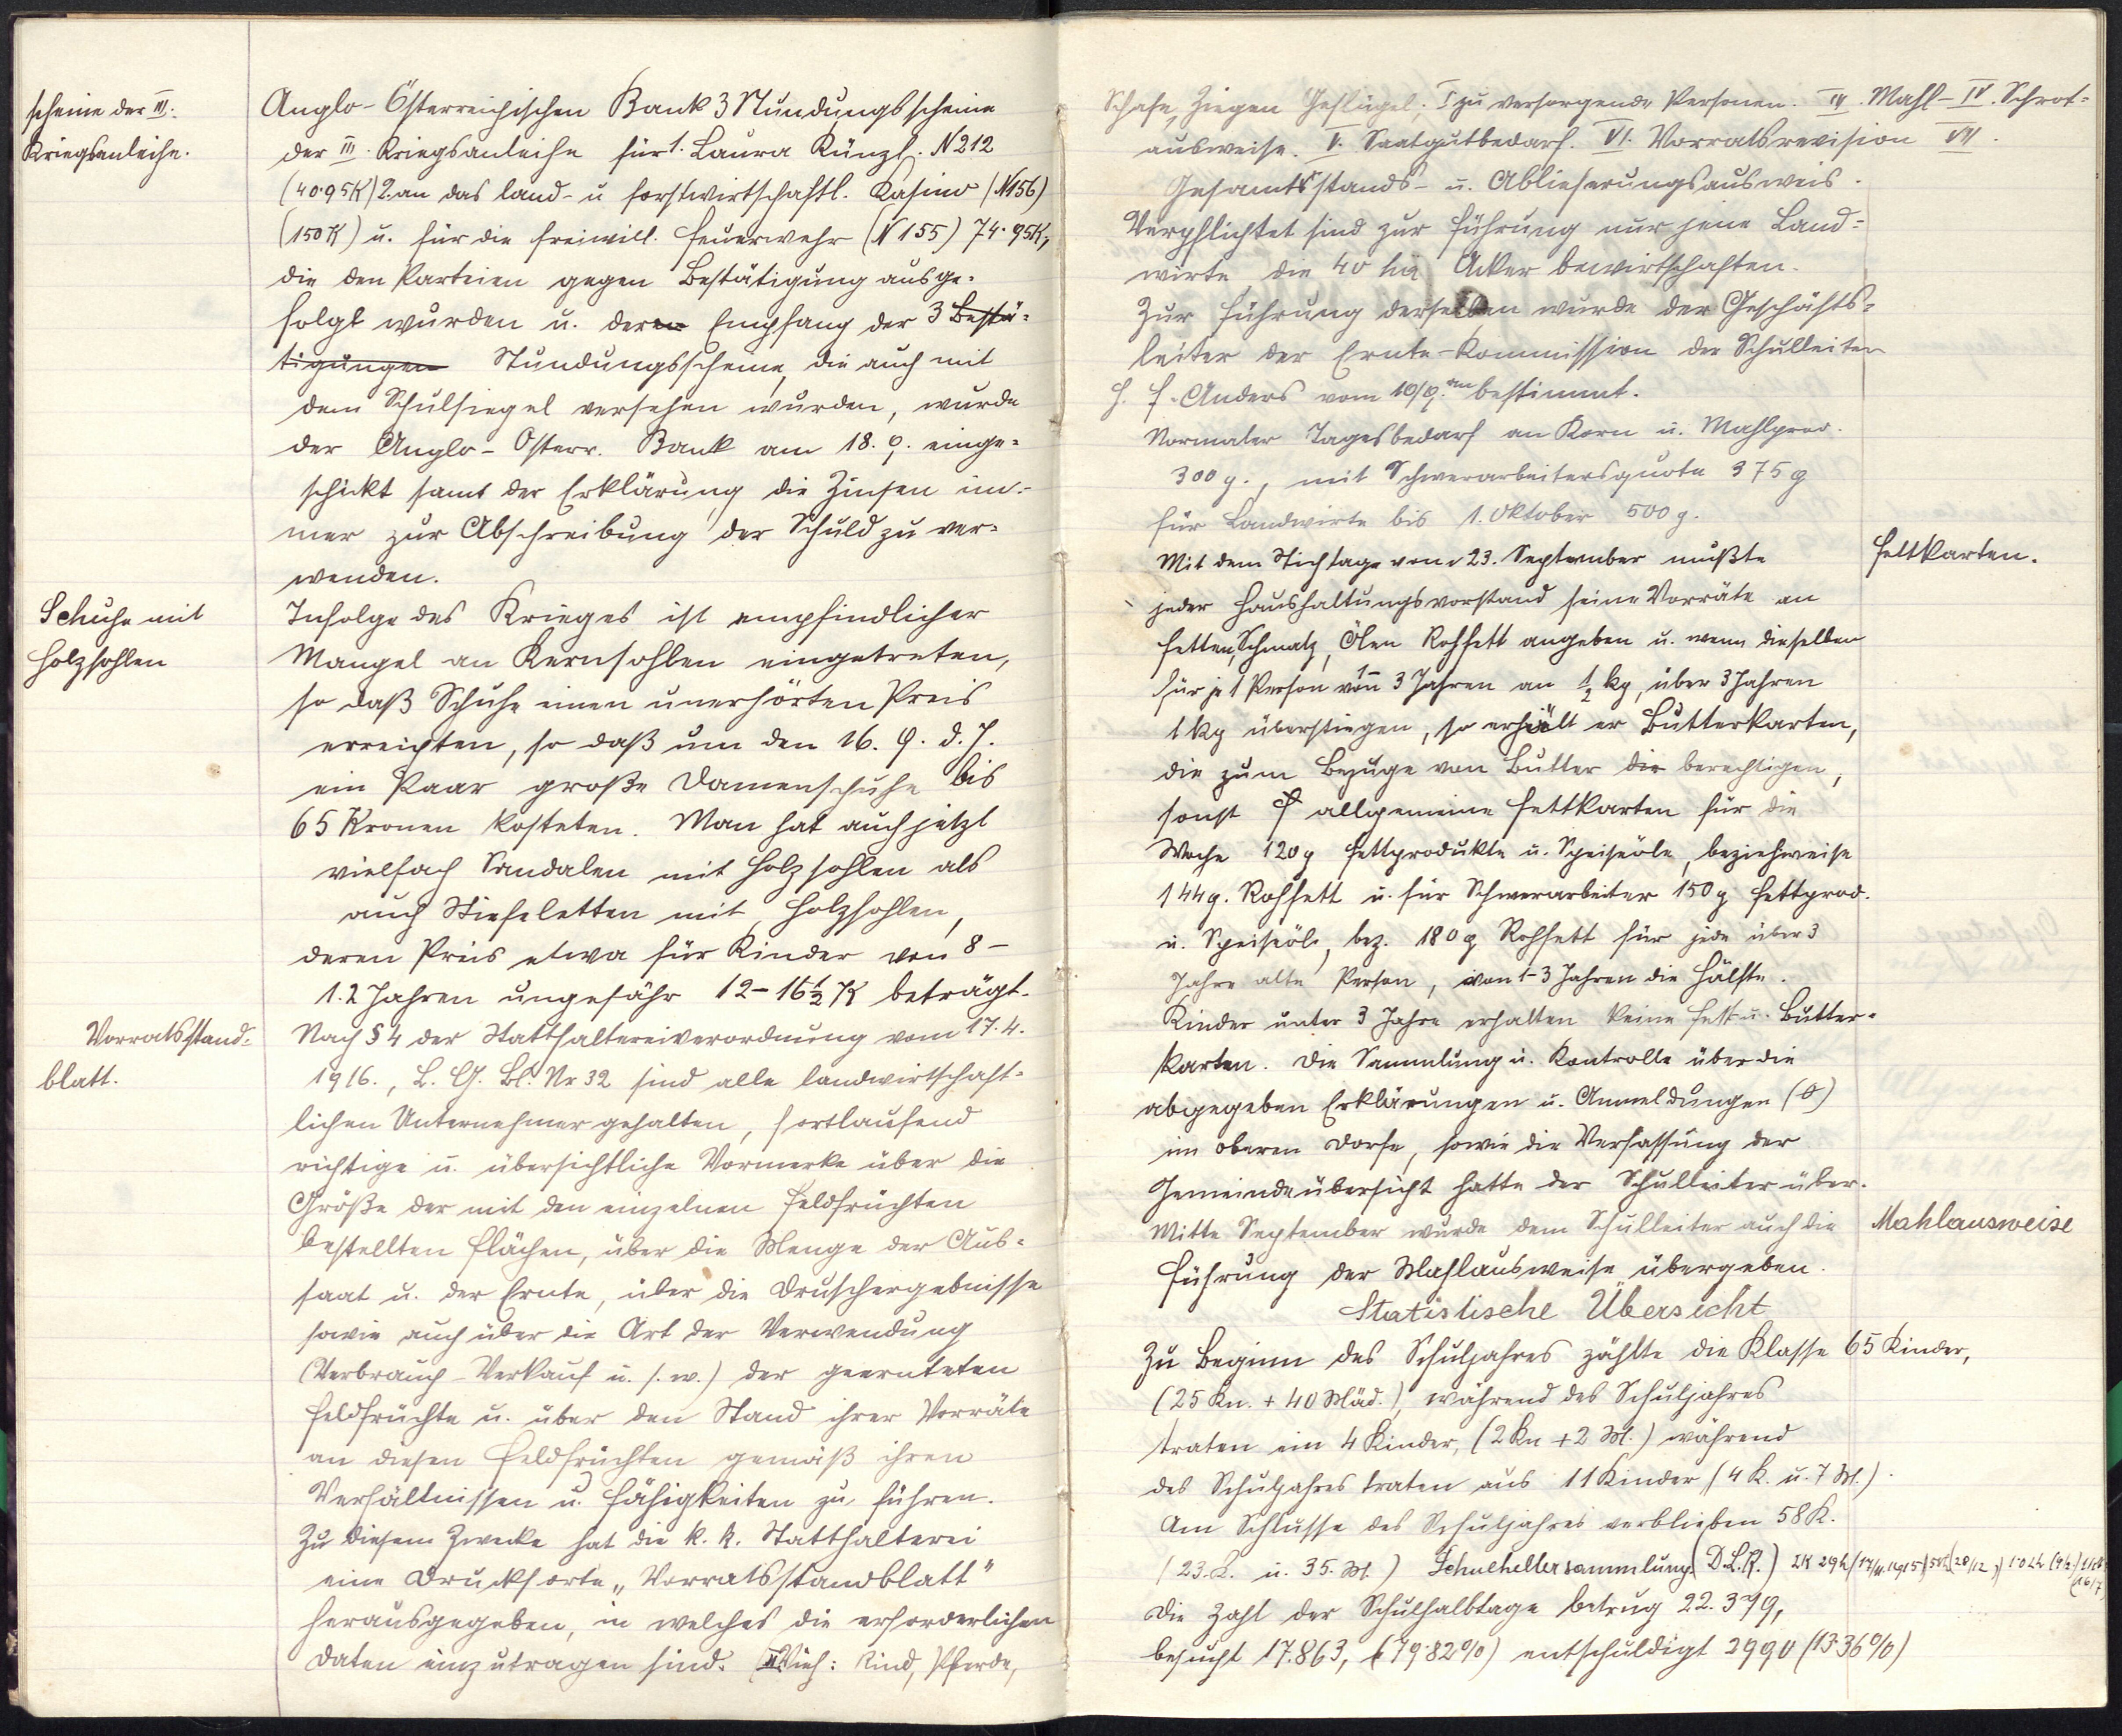 scheine der III.
Kriegsanleihe.
Anglo-Österreichischen Bank 3 Stundungsscheine
der III. Kriegsanleihe für 1. Laura Künzl. N 212
(40·95K) 2. an das land- u forstwirtschaftl. Kasino (N 156)
(150 K) u. für die freiwill. Feuerwehr (N 155) 74·95K,
die den Parteien gegen Bestätigung ausge-
folgt wurden u. deren Empfang der 3 Bestä-
tigungen Stundungsscheine, die auch mit
dem Schulsiegel versehen wurden, wurde
der Anglo-Österr. Bank am 18. 9. einge-
schickt samt der Erklärung, die Zinsen im-
mer zur Abschreibung der Schuld zu ver-
wenden.
Schuhe mit
Holzsohlen
Infolge des Krieges ist empfindlicher
Mangel an Kernsohlen eingetreten,
so daß Schuhe einen unerhörten Preis
erreichten, so daß um den 16. 9. d. J.
ein Paar große Damenschuhe bis
65 Kronen kosteten. Man hat auch jetzt
vielfach Sandalen mit Holzsohlen als
auch Stiefeletten mit Holzsohlen,
deren Preis etwa für Kinder von 8-
12 Jahren ungefähr 12-16½ K beträgt.
Vorratsstand-
blatt.
Nach § 4 der Statthaltereiverordnung vom 17. 4.
1916., L. G. Bl. Nr 32 sind alle landwirtschaft-
lichen Unternehmer gehalten, fortlaufend
richtige u. übersichtliche Vormerke über die
Größe der mit den einzelnen Feldfrüchten
bestellten Flächen, über die Menge der Aus-
saat u. der Ernte, über die Druschergebnisse
sowie auch über die Art der Verwendung
(Verbrauch-Verkauf u. s. w.) der geernteten
Feldfrüchte u. über den Stand ihrer Vorräte
an diesen Feldfrüchten gemäß ihren
Verhältnissen u. Fähigkeiten zu führen.
Zu diesem Zwecke hat die k. k. Statthalterei
eine Drucksorte „Vorratsstandblatt"
herausgegeben, in welches die erforderlichen
Daten einzutragen sind. II. Vieh: Rind, Pferde,
Schafe, Ziegen Geflügel; I zu versorgende Personen. IV. Mahl- IV. Schrot-
ausweise. V. Saatgutbedarf. VI. Vorratsrevision VII.
Gesamtsstands- u. Ablieferungsausweis.
Verpflichtet sind zur Führung nur jene Land-
wirte, die 40 ha Äcker bewirtschaften.
Zur Führung derselben wurde der Geschäfts-
leiter der Ernte-Kommission der Schulleiter
H. F. Anders vom 10/9. an bestimmt.
Normaler Tagesbedarf an Korn u. Mahlprod.
300 g., mit Schwerarbeitersquote 375 g
für Landwirte bis 1. Oktober 500 g.
Fettkarten.
Mit dem Stichtage vom 23. September mußte
jeder Haushaltungsvorstand seine Vorräte an
Fetten, Schmalz, Ölen Rohfett angeben u. wenn dieselben
für je 1 Person von 1-3 Jahren an ½ kg, über 3 Jahren
1 kg überstiegen, so erhielt er Butterkarten,
die zum Bezuge von Butter die berechtigen,
sonst allgemeine Fettkarten für die
Woche 120 g Fettprodukte u. Speiseöle, beziehweise
144 g. Rohfett u. für Schwerarbeiter 150 g Fettprod.
u. Speiseöle, bez. 180 g Rohfett für jede über 3
Jahre alte Person, von 1-3 Jahren die Hälfte.
Kinder unter 3 Jahre erhalten keine Fett u. Butter-
karten. Die Sammlung u. Kontrolle über die
abgegeben Erklärungen u. Anmeldungen
im oberen Dorfe, sowie die Verfassung der
Gemeindeübersicht hatte der Schulleiter über.
Mahlausweise
Mitte September wurde dem Schulleiter auch die
Führung der Mahlausweise übergeben.
Statistische Übersicht
Zu Beginn des Schuljahres zählte die Klasse 65 Kinder,
(25 Kn. + 40 Mäd.), während des Schuljahres
traten ein 4 Kinder, (2 Kn + 2 M.) während
des Schuljahres traten aus 11 Kinder (4 K. u. 7 M.).
Am Schlusse des Schuljahres verblieben 58 K.
(23. K. u. 35. M.) Schulhellersammlung (D.L.R.) 2K 29h
Die Zahl der Schulhalbtage betrug 22.379,
besucht 17.863, (79·82%) entschuldigt 2990 (13·36%)